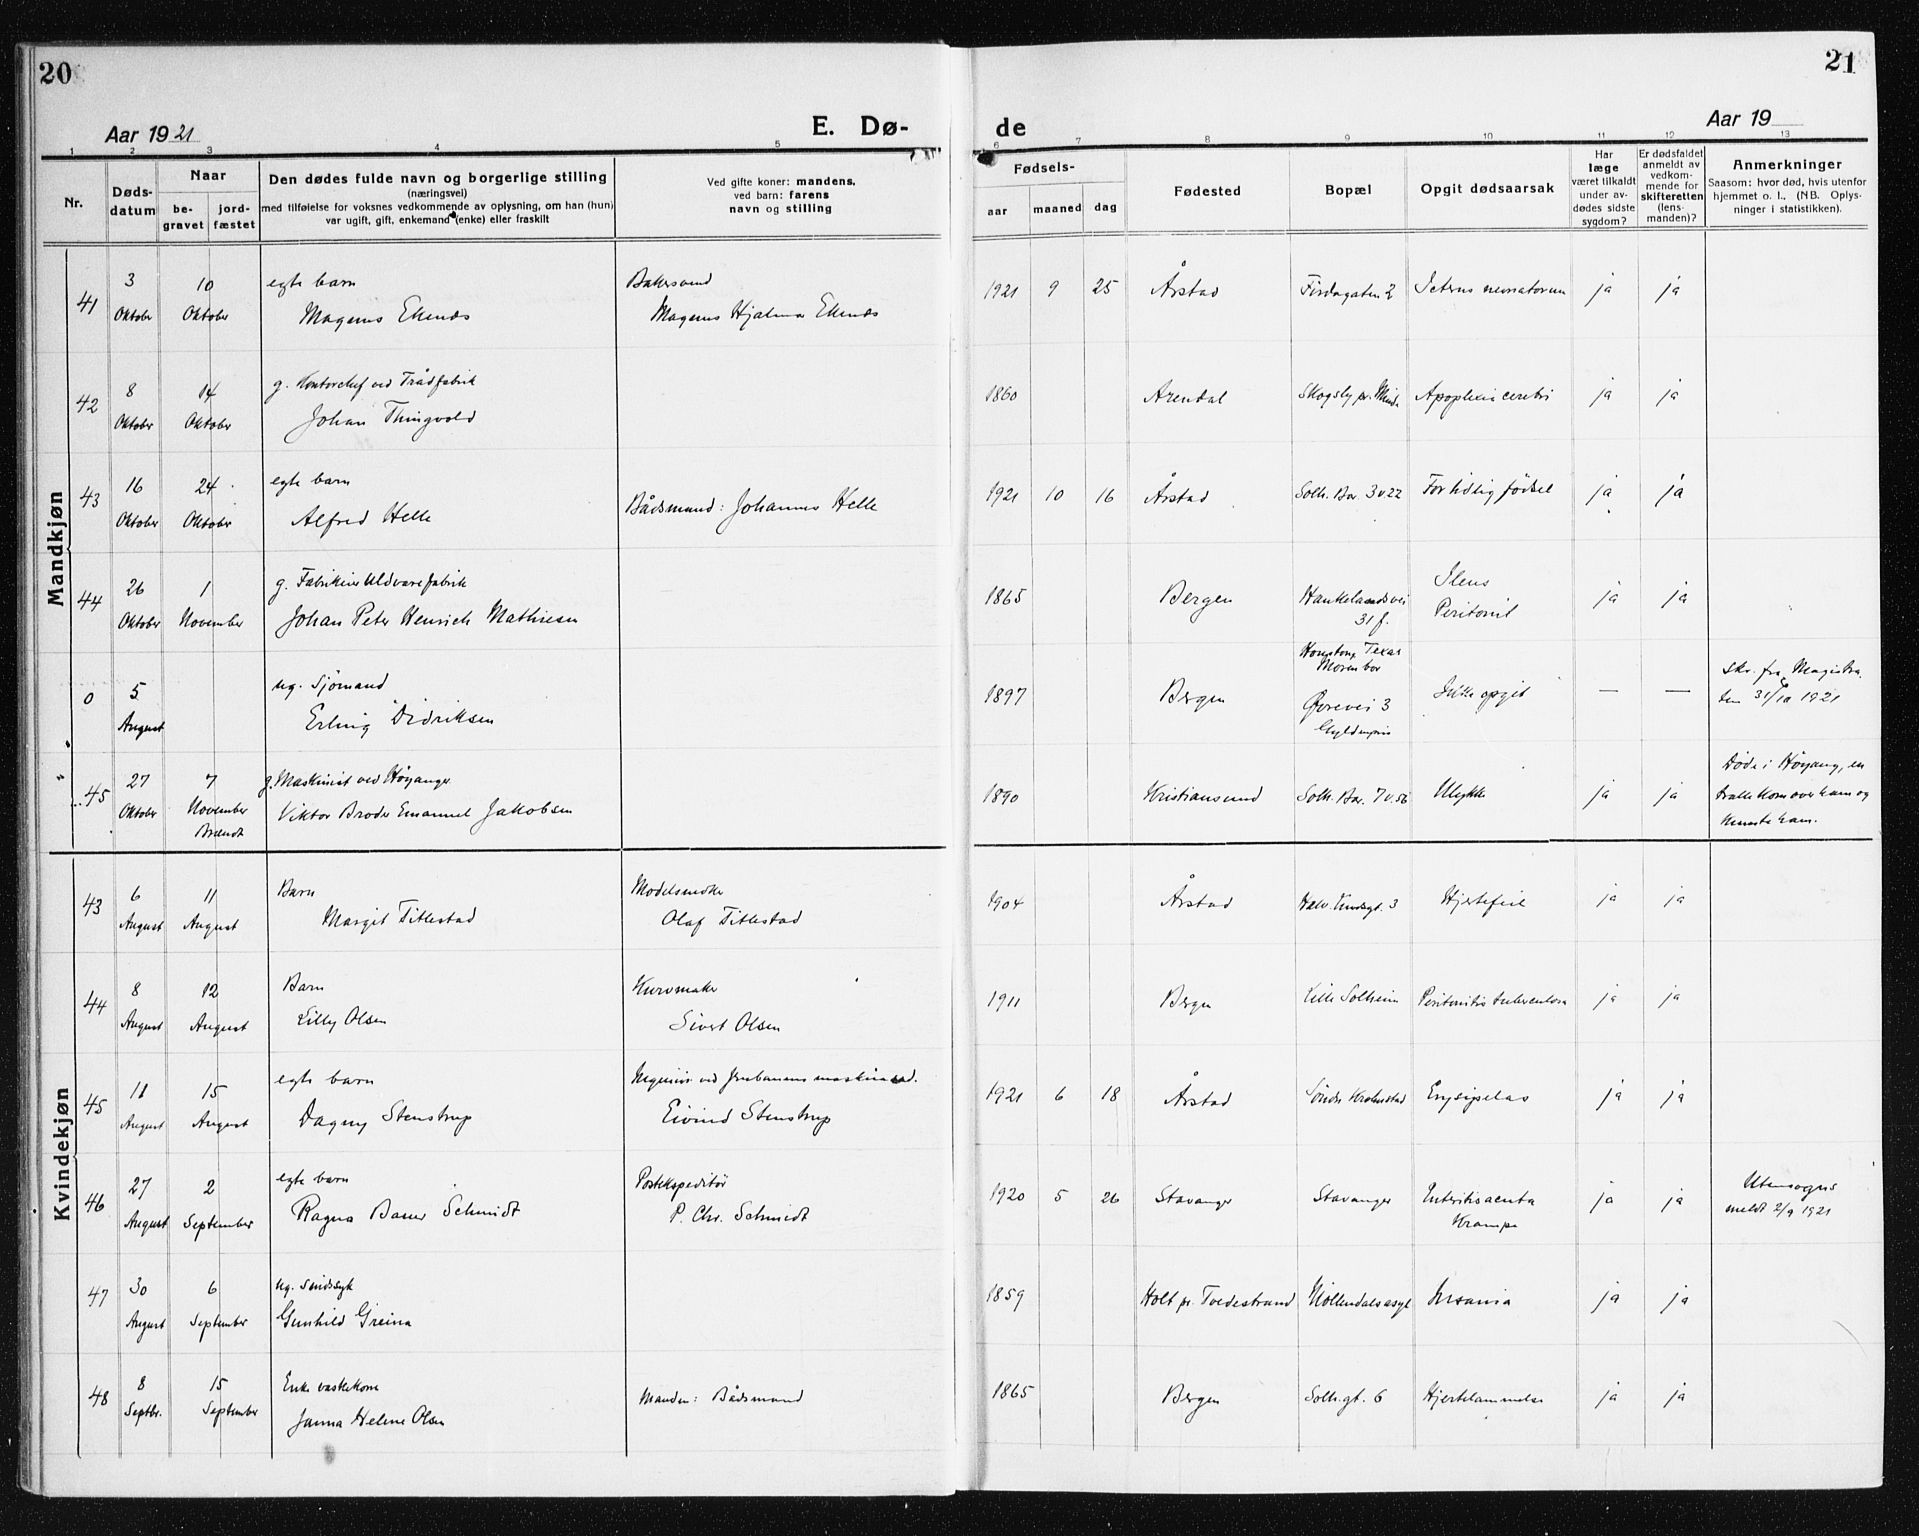 20
Aar 1921
E. Dø-
1 2 3 4 5
Nr.
Døds-
datum
Naar
be-
gravet
jord-
fæstet
Den dødes fulde navn og borgerlige stilling
(næringsvei)
med tilføielse for voksnes vedkommende av oplysning, om han (hun)
var ugift, gift, enkemand (enke) eller fraskilt
Ved gifte koner: mandens,
ved barn: farens
navn og stilling
Mandkjøn
41
3
Oktober
10
Oktober
egte barn
Magnus Ekenæs
Magnus Hjalmar Ekenæs
42
8
Oktober
14
Oktober
g. Kontorchef ved Trådfabrik
Johan Thingvold
43
16
Oktober
24
Oktober
egte barn
Alfred Helle
Bådsmand: Johannes Helle
44
26
Oktober
1
November
g. Uldvarefabrik
Johan Peter Henrich Mathiesen
0
5
August
ug. Sjømand
Erling Didriksen
45
27
Oktober
7
November
Brændt
g. Maskinist ved Høyanger
Viktor Broder Emanuel Jakobsen
Kvindekjøn
43
6
August
11
August
Barn
Margit Titlestad
Olaf Titlestad
44
8
August
12
August
Barn
Lilly Olsen
Kurvmaker
Sivert Olsen
45
11
August
15
August
egte barn
Dagny Stenstrup
Eivind Stenstrup
46
27
August
2
September
egte barn
Ragna Bauer Schmidt
Postekspeditør
P. Chr. Schmidt
47
30
August
6
September
ug. Sindssyk
Gunhild Greina
48
8
Septbr.
15
September
Enke vaskekone
Janna Helene Olsen
Manden: Bådsmand
21
de
Aar 19
6 7 8 9 10 11 12 13
Fødsels-
aar
maaned
dag
Fødested
Bopæl
Opgit dødsaarsak
Har
læge
været tilkaldt
under av-
dødes sidste
sygdom?
Er dødsfaldet
anmeldt av
vedkom-
mende for
skifteretten
(lens-
manden)?
Anmerkninger
Saasom: hvor død, hvis utenfor
hjemmet o. l., (NB. Oplys-
ninger i statistikken).
1921 9 25 Årstad Fjordagaten 2 Icterus neonatorum ja ja
1860 Arendal Skogsly pr. Minde Apoplexia cerebri ja ja
1921 10 16 Årstad Solh. Bar. 3 v 22 For tidlig fødsel ja ja
1865 Bergen Haukelandsvei
31 f.
Ileus
Peritonit
ja ja
1897 Bergen
Houston, Texas
Moren bor
Øvrevei 3
Gyldenpris
Ikke opgit — —
Skr. fra Magistra.
den 31/10 1921
1890 Kristiansund Solh. Bar. 7 v. 56 Ulykke ja ja
Døde i Høyang, en
tralle kom over ham og
knuste ham.
1904 Årstad 3 Hjertefeil ja ja
1911 Bergen Lille Solheim Peritonitis tuberculosa ja ja
1921 6 18 Årstad Søndre Kronstad Erysipelas ja ja
1920 5 26 Stavanger Stavanger Enteritis acuta
Krampe
ja ja
Utensogns
meldt 2/9 1921
1859 Holt pr. Tvedestrand Møllendalsasyl Insania ja ja
1865 Bergen Solh.gt. 6 Hjertelammelse ja ja